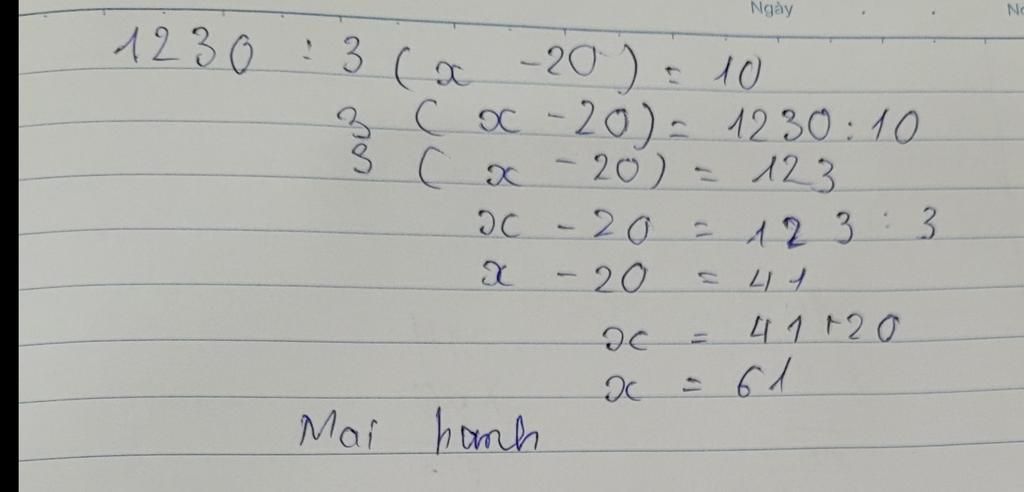 Ngày
1230 : 3 ( x - 20 ) = 10
3 ( x - 20 ) = 1230 : 10
3 ( x - 20 ) = 123
x - 20 = 123 : 3
x - 20 = 41
x = 41 + 20
x = 61
Mai hanh